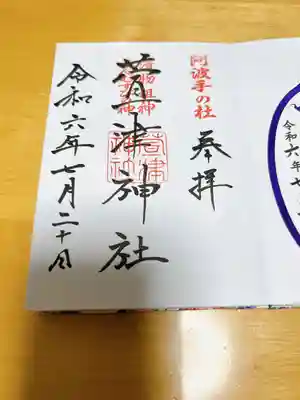 阿波手の社
奉拝
萱津神社
萱津神社
令和六年七月二十日
令和六年七